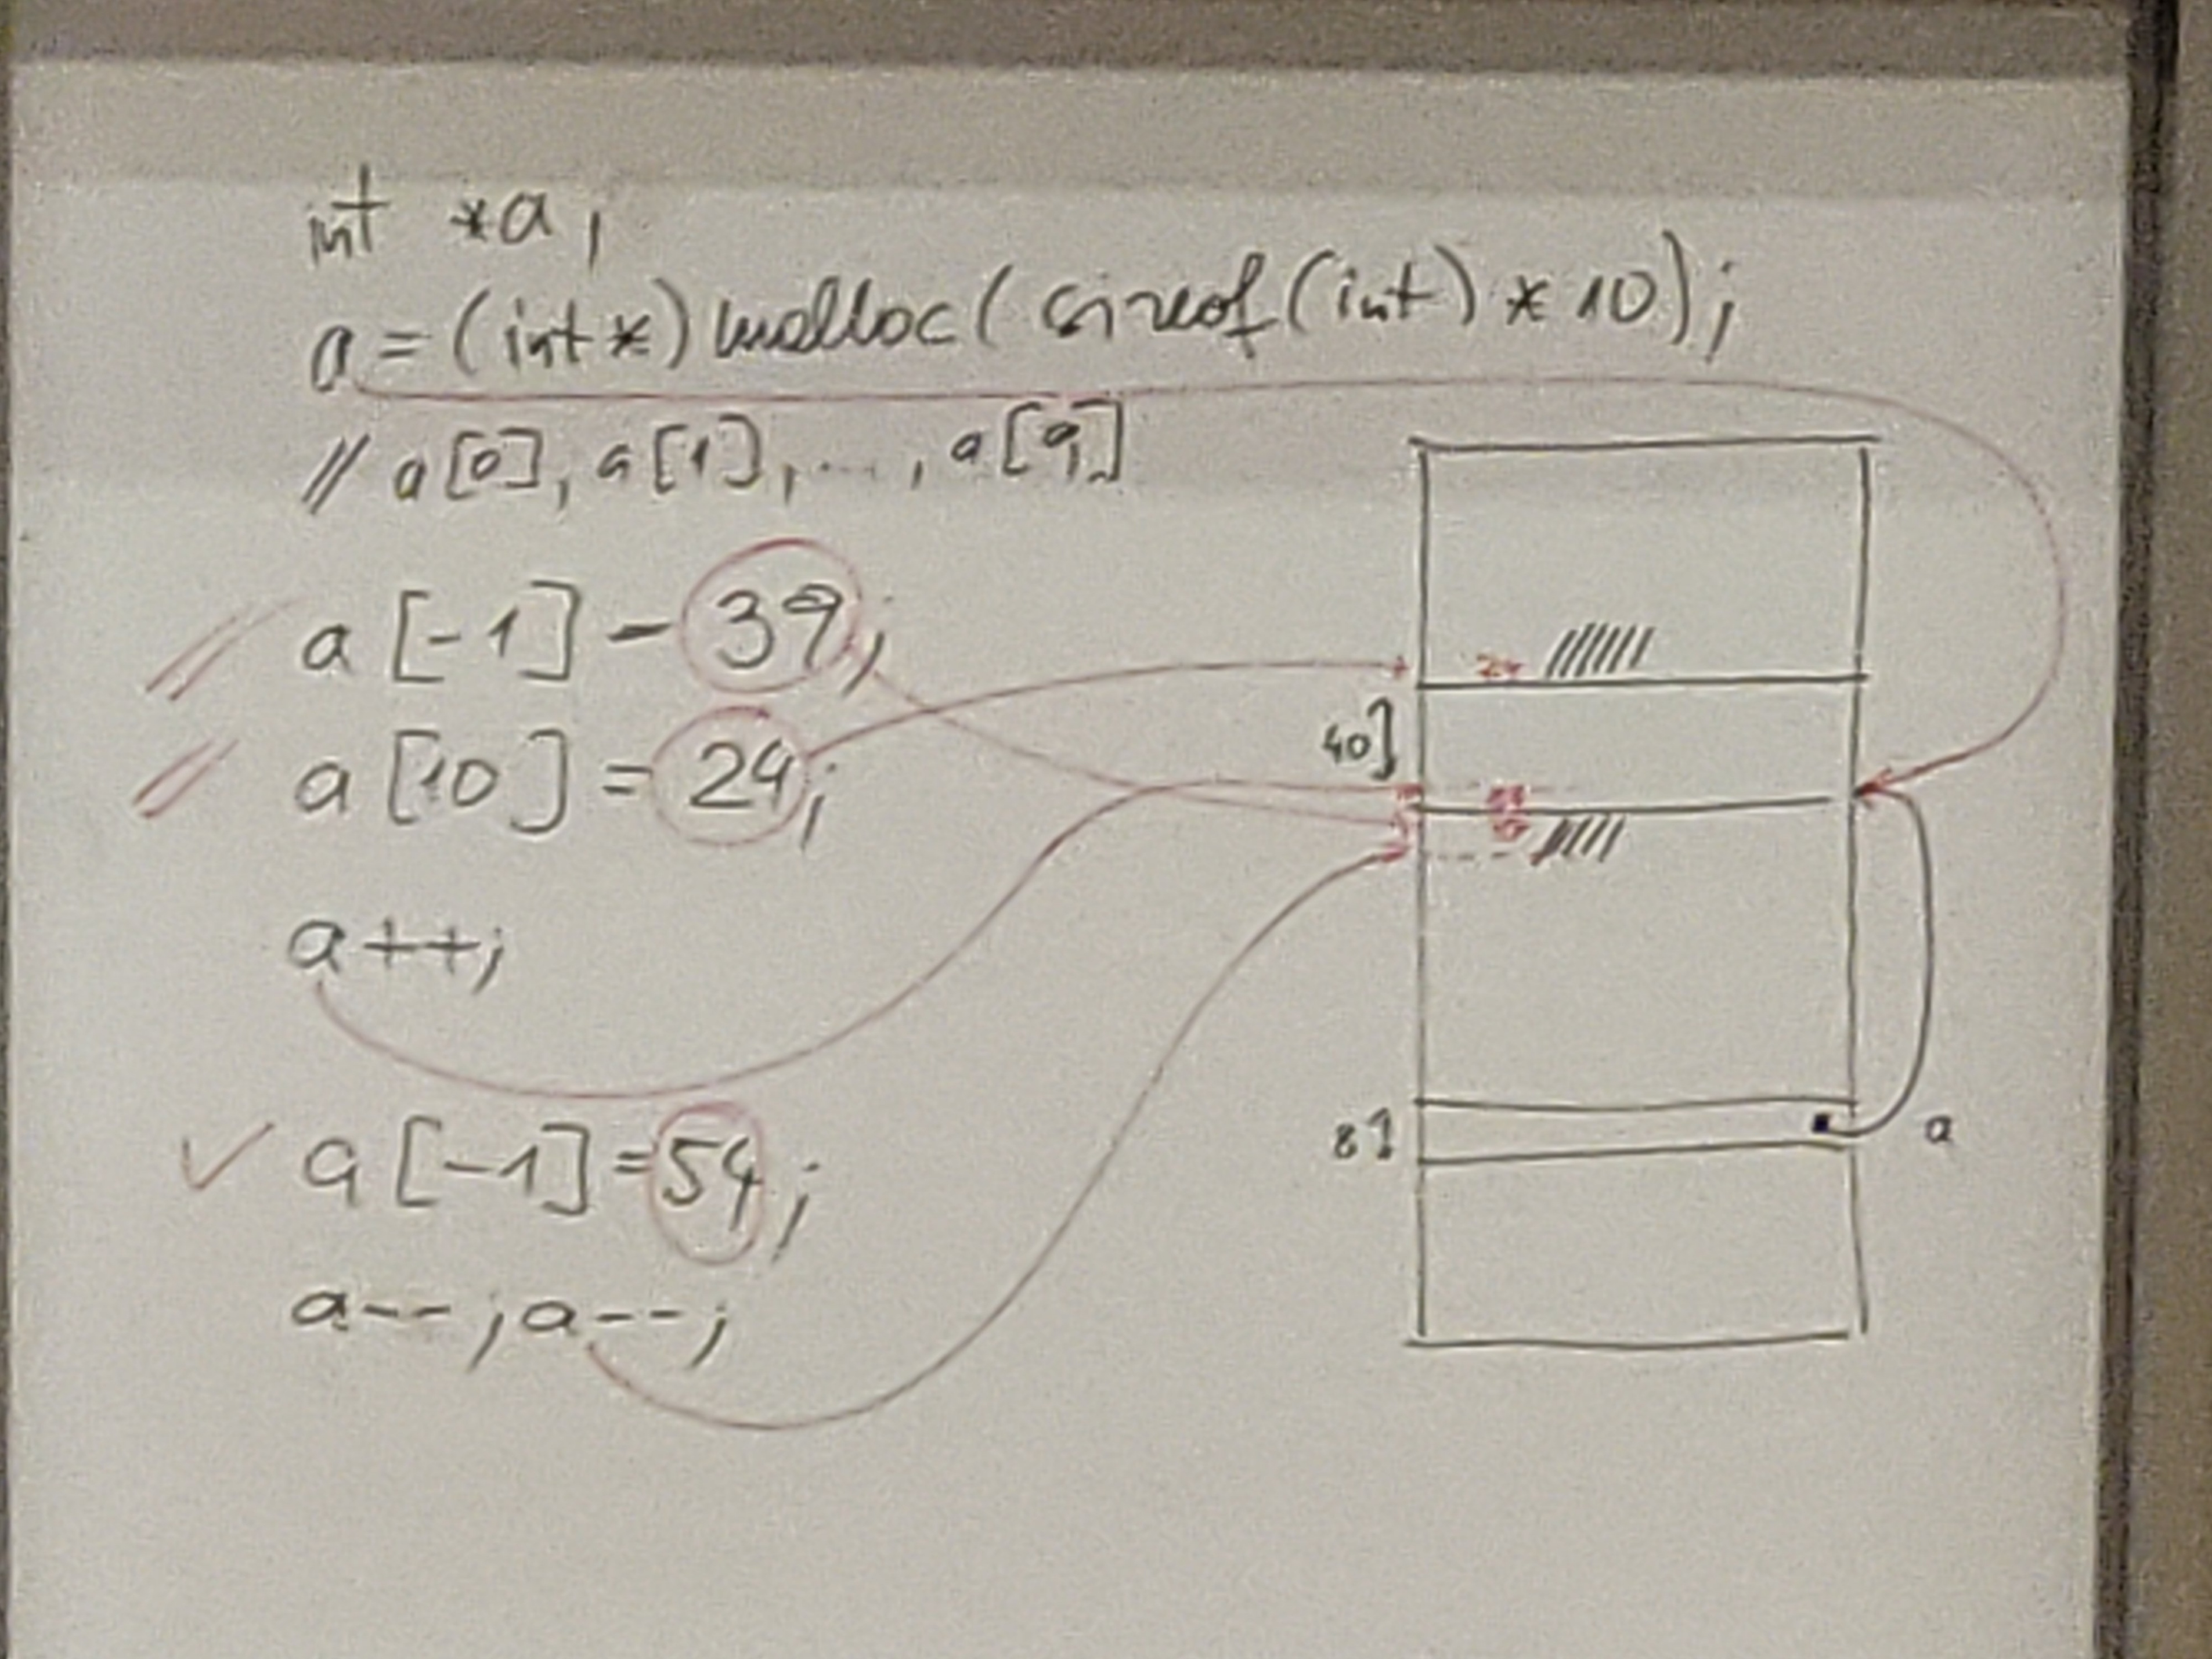 int *a;
a = (int*) malloc( sizeof(int) * 10);
// a[0], a[1], ..., a[9]
// a[-1] - 39;
// a[10] = 24;
a++;
✓ a[-1] = 54;
a--; a--;
24
40]
8]
a